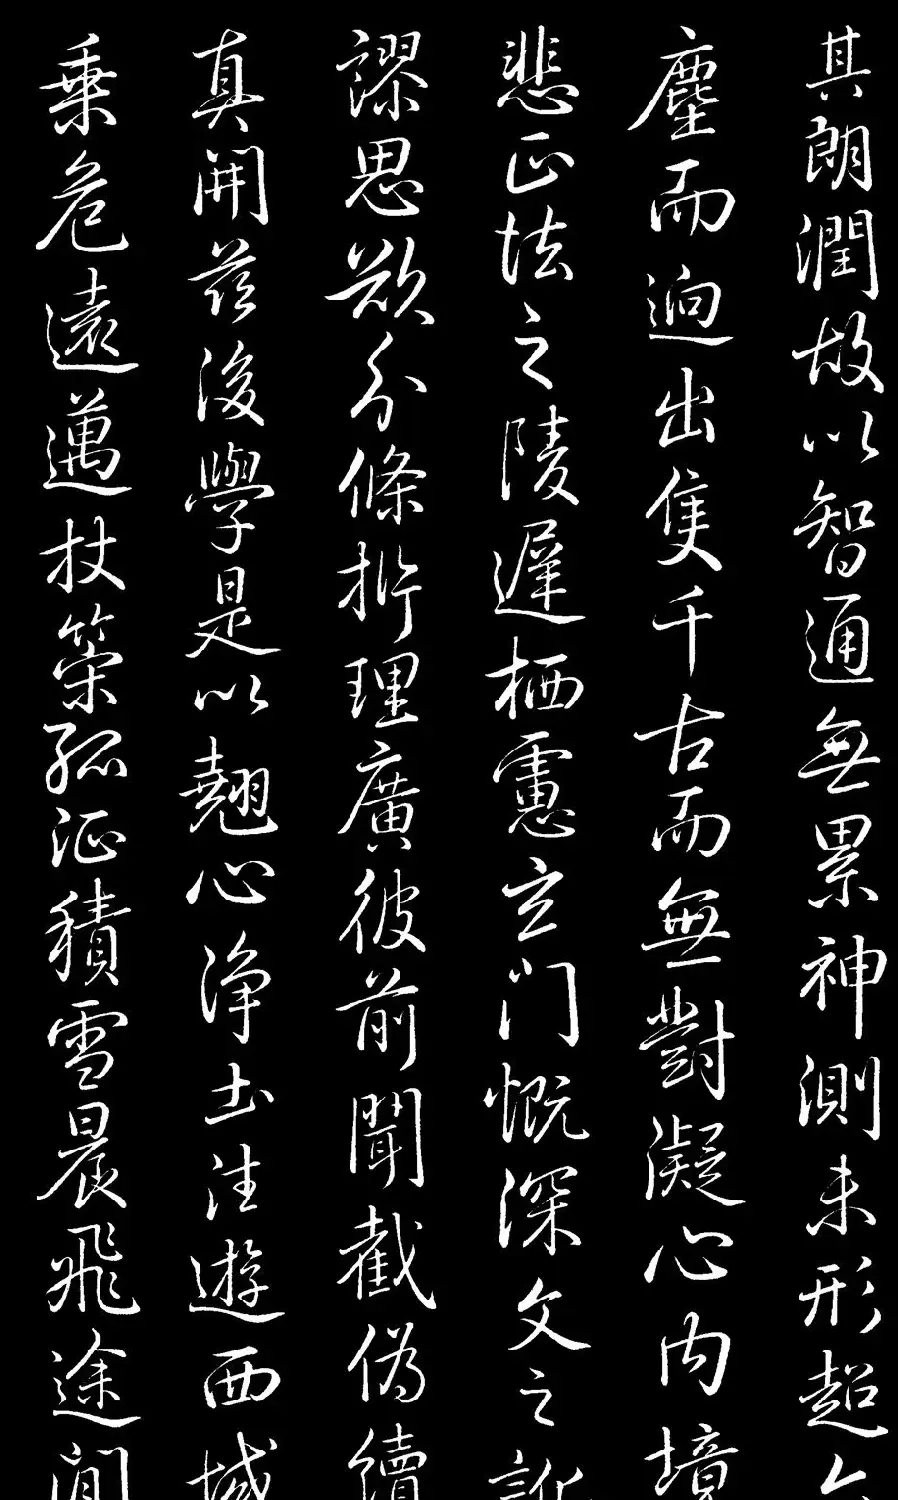 其朗潤故以智通無累神測未形超六
塵而逈出隻千古而無對凝心內境
悲正法之陵遲栖慮玄門慨深文之訛
謬思欲分條析理廣彼前聞截偽續
真開茲後學是以翹心淨土法遊西域
乗危遠邁杖策孤征積雪晨飛途閒